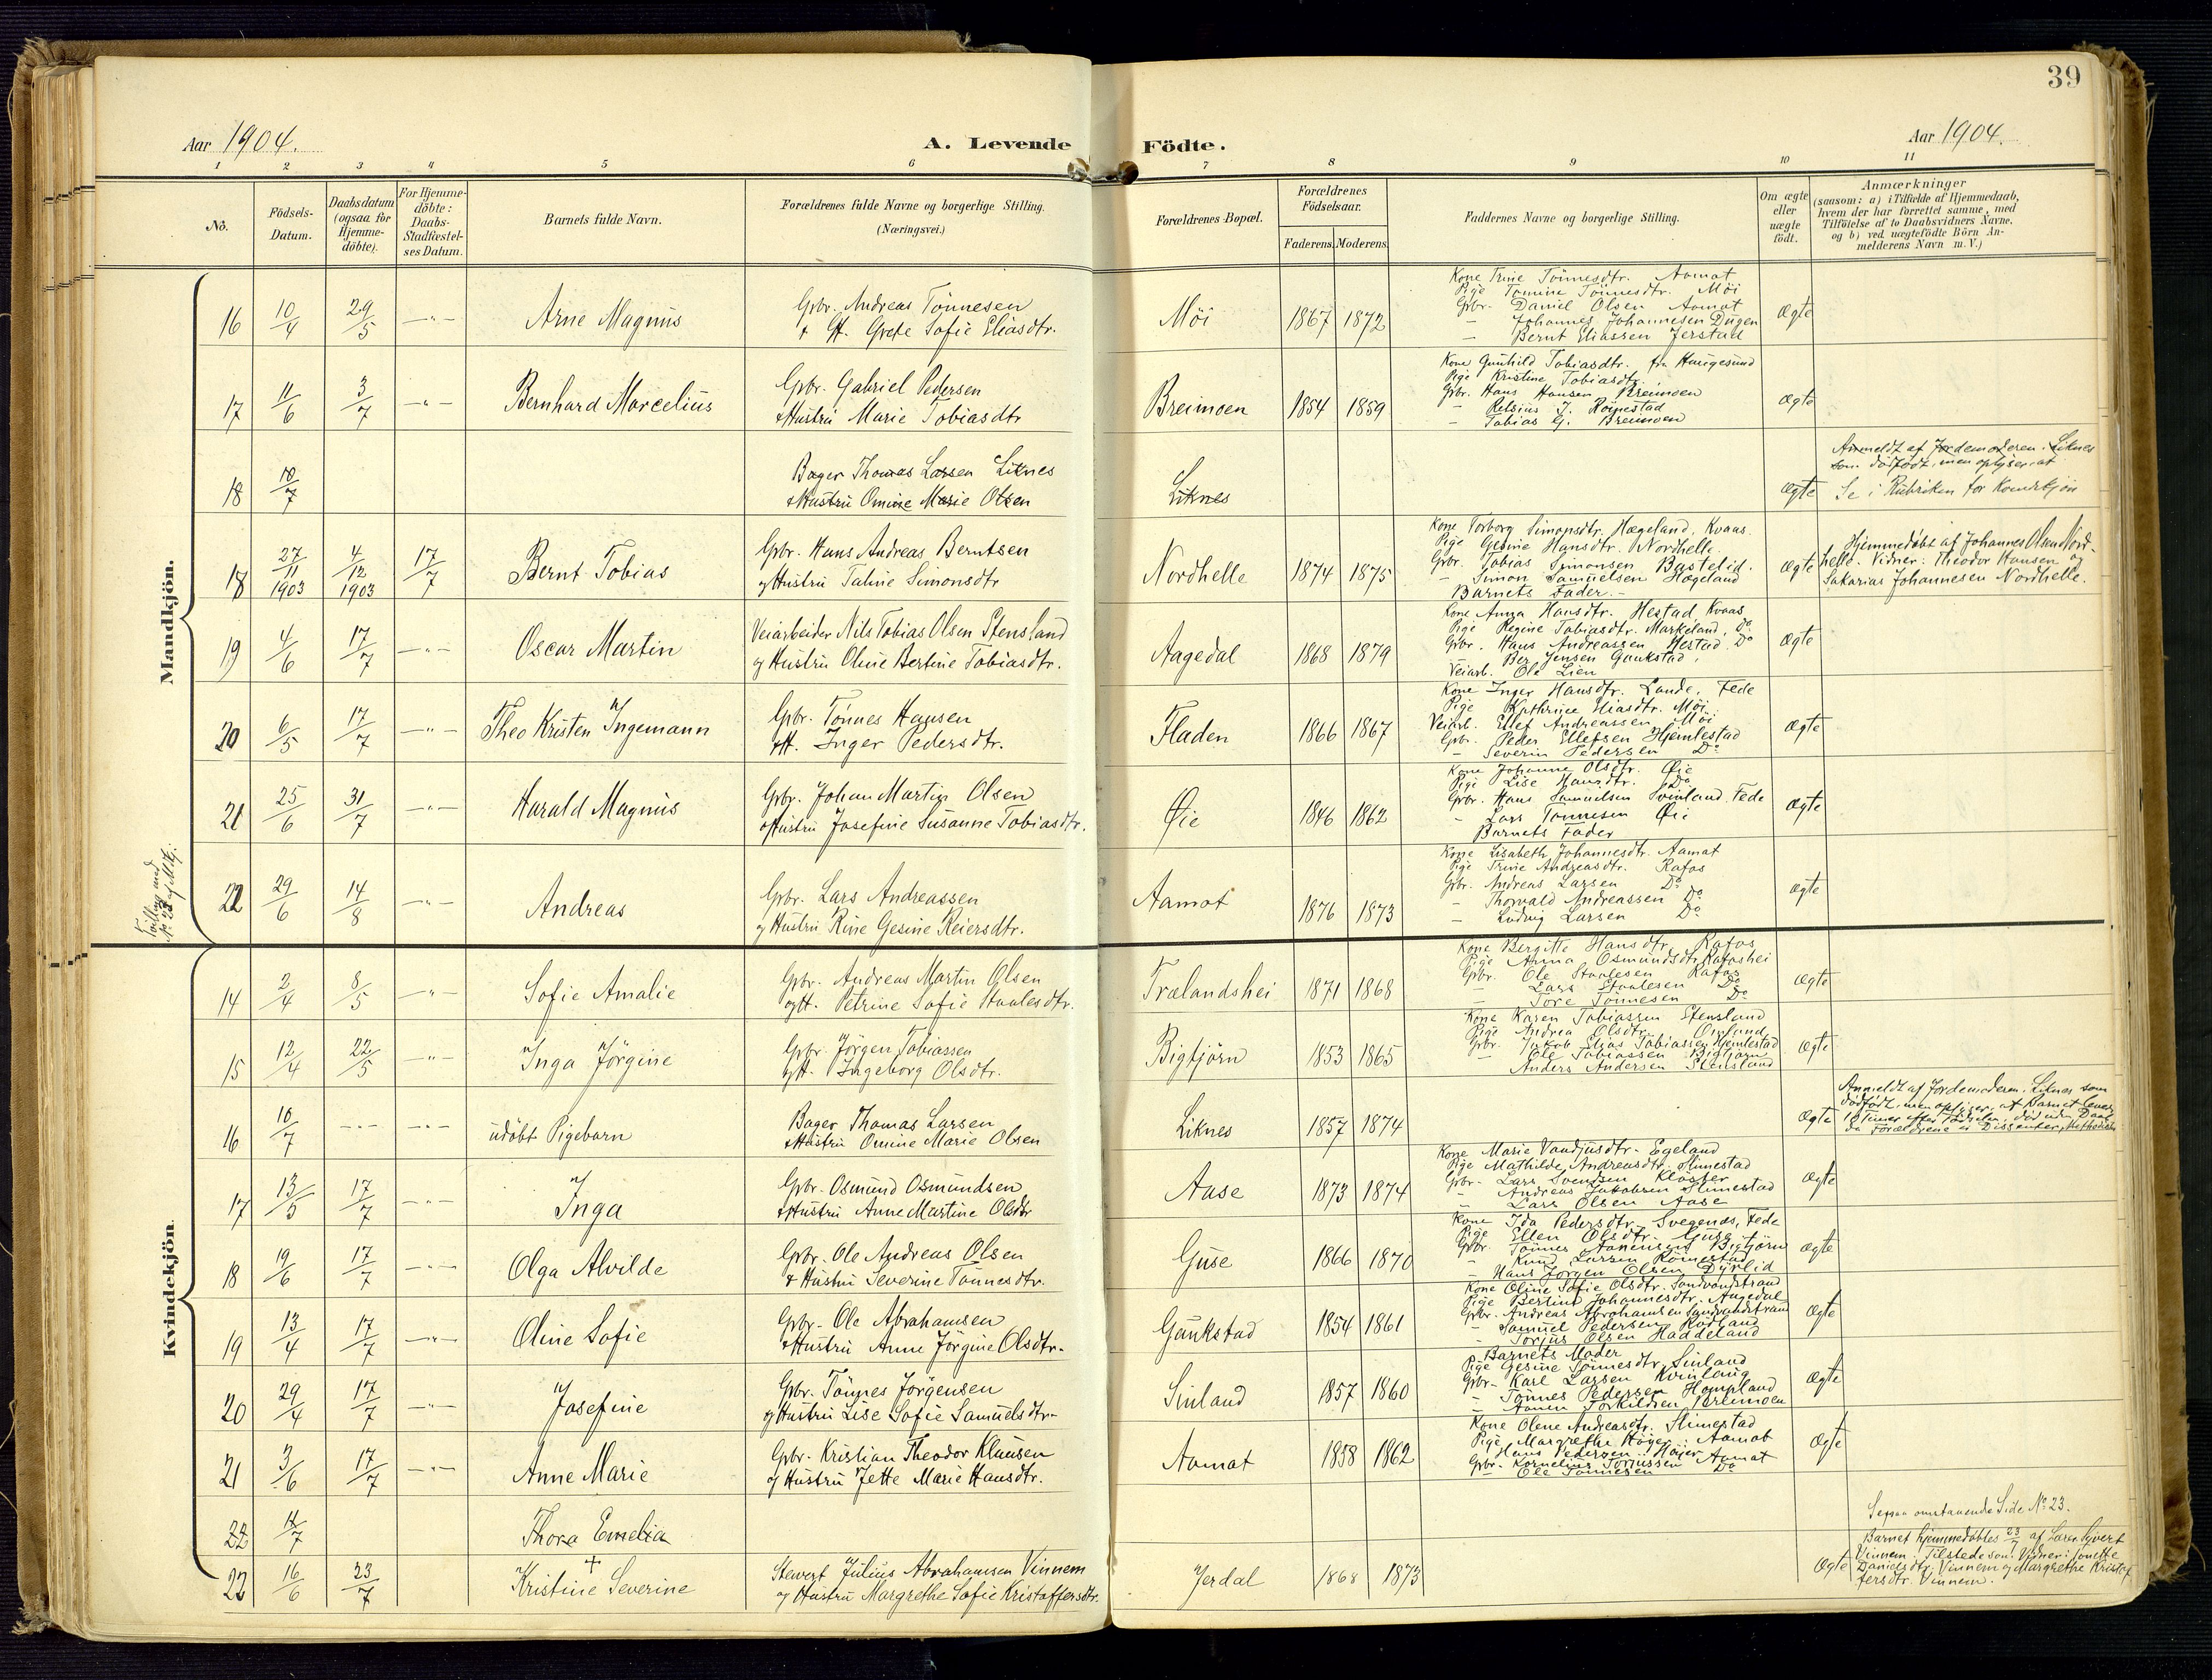 39
Aar 1904.
A. Levende Födte.
Aar 1904.
1 2 3 4 5 6 7 8 9 10 11
No.
Födsels-Datum.
Daabsdatum (ogsaa for Hjemme-döbte).
For Hjemme-döbte: Daabs-Stadfæstel-ses Datum.
Barnets fulde Navn.
Forældrenes fulde Navne og borgerlige Stilling. (Næringsvei.)
Forældrenes Bopæl.
Forældrenes Födselsaar.
Faderens. Moderens.
Faddernes Navne og borgerlige Stilling.
Om ægte eller uægte födt.
Anmærkninger
(saasom: a) i Tilfælde af Hjemmedaab,
hvem der har forrettet samme, med
Tilföielse af to Daabsvidners Navne.
og b) ved uægtefödte Börn An-
melderens Navn m. V.)
Mandkjön.
16 10/4 29/5 —"— Arne Magnus
Gbr. Andreas Tönnesen
+ H. Grete Sofie Eliasdtr.
Möi 1867 1872
Kone Trine Tönnesdtr. Aamot
Pige Tomine Tönnesdtr. Möi
Gbr. Daniel Olsen Aamot
— Johannes Johannesen Dugen
— Bernt Eliassen Jerstad
Ægte
17 11/6 3/7 —"— Bernhard Marcelius
Gbr. Gabriel Pedersen
+ Hustru Marie Tobiasdtr
Breimoen 1854 1859
Kone Gunhild Tobiasdtr. fra Haugesund
Pige Kristine Tobiasdtr.
Gbr. Hans Hansen Breimoen
— Relsius J. Röinestad
— Tobias G. Breimoen
Ægte
18 10/7
Bager Thomas Larsen Liknes
+ Hustru Omine Marie Olsen
Liknes
Ægte
Anmeldt af Jordemoderen. Liknes
som dödfödt, men oplyser, at
Se i Rubriken for Kvindekjön
18 27/11 1903 4/12 1903 17/7 Bernt Tobias
Gbr. Hans Andreas Berntsen
og Hustru Taline Simonsdtr
Nordhelle 1874 1875
Kone Torborg Simonsdtr. Hægeland, Kvaas.
Pige Gesine Hansdtr. Nordhelle.
Gbr. Tobias Simonsen Bastelid.
— Simon Samuelsen Hægeland
Barnets Fader.—
Ægte
Hjemmedöbt af Johannes Olsen Nord-
helle. Vidner: Theodor Hansen og
Sakarias Johannesen Nordhelle.
19 4/6 17/7 —"— Oscar Martin
Veiarbeider Nils Tobias Olsen Stensland
og Hustru Oline Bertine Tobiasdtr.
Aagedal 1868 1879
Kone Anna Hansdtr. Hestad Kvaas
Pige Regine Tobiasdtr. Markeland, Do
Gbr. Hans Andreassen Hestad. Do
Ber Jensen Gaukstad,
Veiarb. Ole Lien
Ægte
20 6/5 17/7 —"— Theo Kristen Ingemann
Gbr. Tönnes Hansen
+ H. Inger Pedersdtr.
Fladen 1866 1867
Kone Inger Hansdtr. Lande, Fede
Pige Kathrine Eliasdtr. Möi
Veiarb. Ellef Andreassen Möi
Gbr. Peder Ellefsen Hjemlestad
— Severin Pedersen Do
Ægte
21 25/6 31/7 —"— Harald Magnus
Gbr. Johan Martin Olsen
og Hustru Josefine Susanne Tobiasdtr.
Øie 1846 1862
Kone Johanne Olsdtr. Øie
Pige Lise Hansdtr. Do
Gbr. Hans Samuelsen Svinland. Fede
— Lars Tönnesen Øie
Barnets Fader
Ægte
22 29/6 14/8 —"— Andreas
Gbr. Lars Andreassen
og Hustru Rine Gesine Reiersdtr.
Aamot 1876 1873
Kone Lisabeth Johannesdtr. Aamot
Pige Trine Andreasdtr. Rafos
Gbr. Andreas Larsen Do
— Thorvald Andreassen Do
— Ludvig Larsen Do
Ægte
Kvindekjön
14 2/4 8/5 —"— Sofie Amalie
Gbr. Andreas Martin Olsen
og H. Petrine Sofie Staalesdtr.
Trælandshei 1871 1868
Kone Bergitte Hansdtr. Rafos
Pige Anna Osmundsdtr. Rafoshei
Gbr. Ole Staalesen Rafos
— Lars Staalesen Do
— Tore Tönnesen Do
Ægte
15 12/4 22/5 —"— Inga Jörgine
Gbr. Jörgen Tobiassen
og H. Ingeborg Olsdtr.
Bigtjörn 1853 1865
Kone Karen Tobiassen Stensland
Pige Andrea Olsdtr.
Gbr. Jakob Elias Tobiassen Hjemlestad
— Ole Tobiassen Bigtjörn
Anders Andersen Stensland
Ægte
16 10/7 —"— —"— udöbt Pigebarn
Bager Thomas Larsen
+ Hustru Omine Marie Olsen
Liknes 1857 1874
Ægte
Anmeldt af Jordemoderen. Liknes som
dödfödt, men oplyser, at Barnet levede
Timer efter Födselen, död uden Daab
da Forældrene er Dissenter, Methodister
17 13/5 17/7 —"— Inga
Gbr. Osmund Osmundsen
+ Hustru Anne Martine Olsdtr
Aase 1873 1874
Kone Marie Vandjusdtr. Egeland
Pige Mathilde Andreasdtr. Slimestad
Gbr. Lars Svendsen Kloster
— Andreas Jakobsen Slimestad
— Lars Olsen Aase
Ægte
18 19/6 17/7 —"— Olga Alvilde
Gbr. Ole Andreas Olsen
+ Hustru Severine Tönnesdtr.
Guse 1866 1870
Kone Ida Pedersdtr. Svegenæs, Fede
Pige Ellen Olsdtr. Guse
Gbr. Tönnes Aanensen Bigtjörn
— Knud Larsen Römestad
— Hans Jörgen Olsen Dyrlid
Ægte
19 13/4 17/7 —"— Oline Sofie
Gbr. Ole Abrahamsen
+ Hustru Anne Jörgine Olsdtr.
Gaukstad 1854 1861
Kone Oline Sofie Olsdtr. Sandvandstrand
Pige Bertine Johannesdtr. Aagedal
Gbr. Andreas Abrahamsen Sandvandstrand
— Samuel Pedersen Rödland
— Torjus Olsen Haddeland
Ægte
20 29/4 17/7 —"— Josefine
Gbr. Tönnes Jörgensen
og Hustru Lise Sofie Samuelsdtr.
Sinland 1857 1860
Barnets Moder
Pige Gesine Tönnesdtr. Sinland
Gbr. Karl Larsen Kvinlaug
— Tönnes Pedersen Hompland
— Aanen Torkildsen
Ægte
21 3/6 17/7 —"— Anne Marie
Gbr. Kristian Theodor Klausen
og Hustru Jette Marie Hansdtr.
Aamot 1858 1862
Kone Olene Andreasdtr. Slimestad
Pige Margrethe Höyer. Aamot
Hans Pedersen Höyer
Gbr. Kornelius Torjussen Aamot
— Ole Tönnesen Do
Ægte
22 11/7 Thora Emelia
Se paa omstaaende Side No 23.
23 16/6 23/7 + Kristine Severine
Stewert Julius Abrahamsen Vinnem
og Hustru Margrethe Sofie Kristoffersdtr.
Jerdal 1868 1873
Ægte
Barnet hjemmedöbtes 23/7 af Lærer Syvert
Vinnem. Tilstede som Vidner: Jonette
Danielsdtr. Vinnem og Margrethe Kristof-
fersdtr. Vinnem.